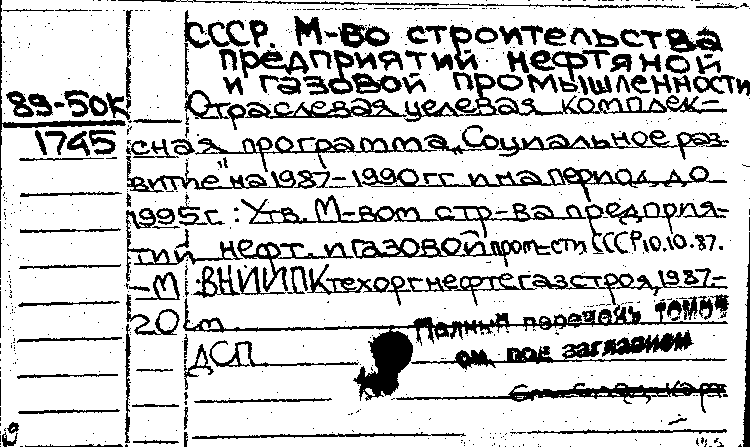 СССР. М-во строительства
предприятий нефтяной
и газовой промышленности
89-50К
1745
Отраслевая целевая комплек-
сная программа „Социальное раз-
витие" на 1987-1990 гг. и на период до
1995 г. : Утв. М-вом стр-ва предприя-
тий нефт. и газовой пром-сти СССР 10.10.87.
- М. : ВНИИПКтехоргнефтегазстроя, 1987.-
20 т
ДСП
Полный перечень томов
см. под заглавием
См. след. карт